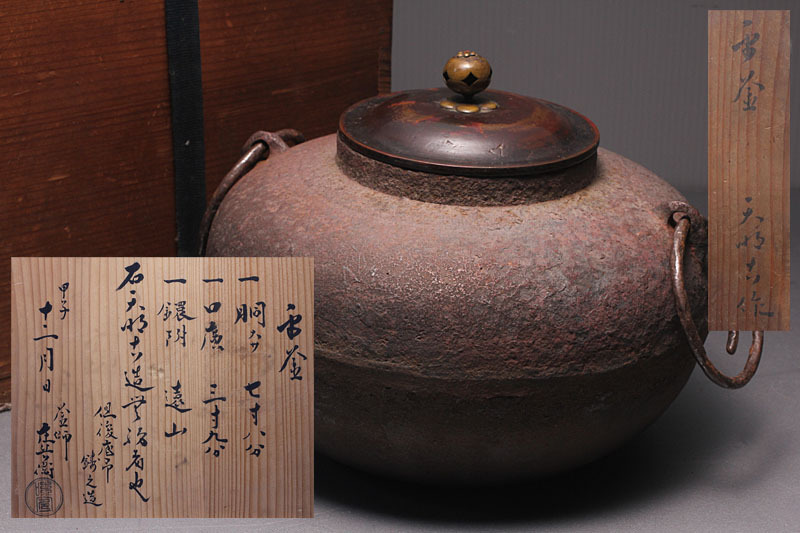 雲釜
天明古作
雲釜
一胴径 七寸八分
一口廣 三寸九分
一鐶附 遠山
右天明古造無紛者也
但後底吊
鋳之造
甲子
十二月日
釜師